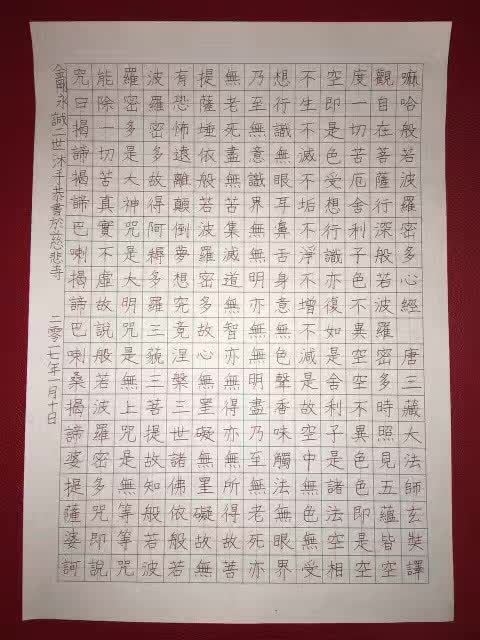 嘛哈般若波羅密多心經 唐三藏大法師玄奘譯
觀自在菩薩行深般若波羅密多時照見五蘊皆空
度一切苦厄舍利子色不異空空不異色色即是空
空即是色受想行識亦復如是舍利子是諸法空相
不生不滅不垢不淨不增不減是故空中無色無受
想行識無眼耳鼻舌身意無色聲香味觸法無眼界
乃至無意識界無無明亦無無明盡乃至無老死亦
無老死盡無苦集滅道無智亦無得亦無所得故菩
提薩埵依般若波羅密多故心無罣礙無罣礙故無
有恐怖遠離顛倒夢想究竟涅槃三世諸佛依般若
波羅密多故得阿耨多羅三藐三菩提故知般若波
羅密多是大神咒是大明咒是無上咒是無等等咒
能除一切苦真實不虛故說般若波羅密多咒即說
咒曰揭諦揭諦巴喇揭諦巴喇桑揭諦婆提薩婆訶
金剛永誠二世沐手恭書於立慈悲寺 二零一七年一月十日